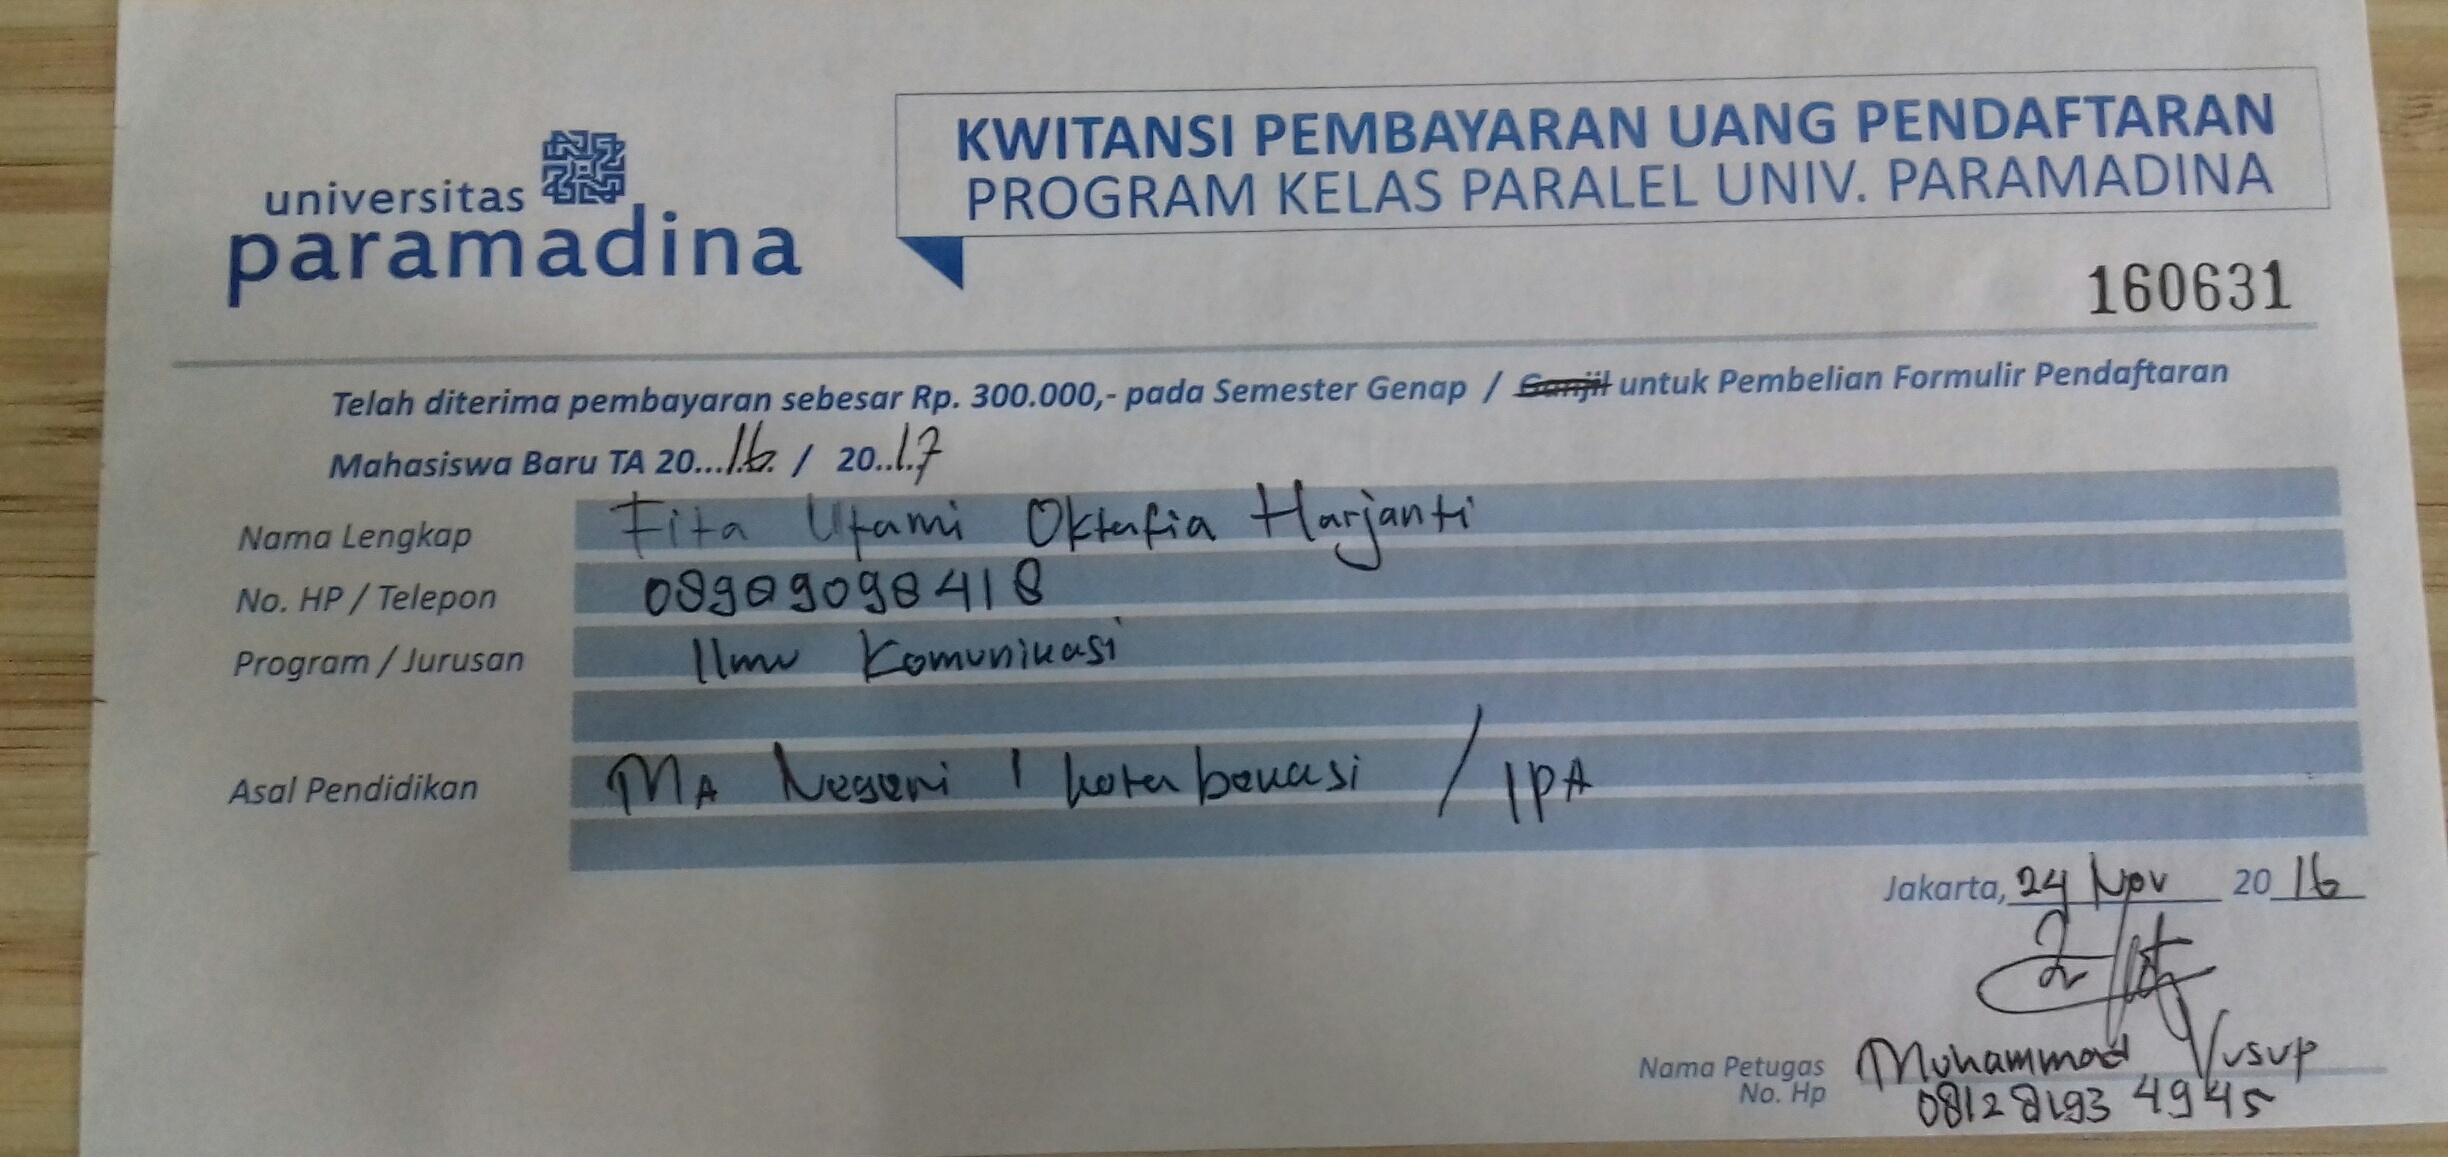 universitas
paramadina
KWITANSI PEMBAYARAN UANG PENDAFTARAN
PROGRAM KELAS PARALEL UNIV. PARAMADINA
160631
Telah diterima pembayaran sebesar Rp. 300.000,- pada Semester Genap / Ganjil untuk Pembelian Formulir Pendaftaran
Mahasiswa Baru TA 20...16. / 20..17
Nama Lengkap Fita Utami Oktafia Harjanti
No. HP / Telepon 08989098418
Program / Jurusan Ilmu Komunikasi
Asal Pendidikan MA Negeri 1 kota bekasi / IPA
Jakarta, 24 Nov 2016
Nama Petugas Muhammad Yusup
No. Hp 0812 8193 4945